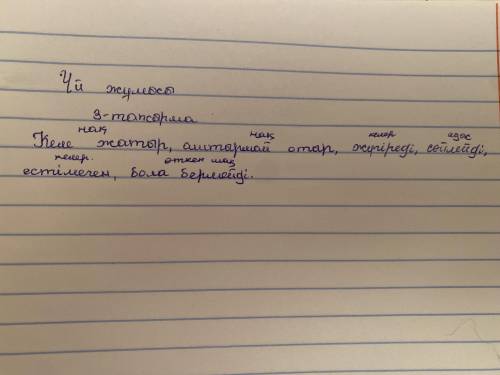 Үй жұмысы
3-тапсырма
нақ нақ келер
Келе жатыр, отыр, жүгіреді, сөйлейді,
келер. өткен шақ
естімеген, бола бермейді.